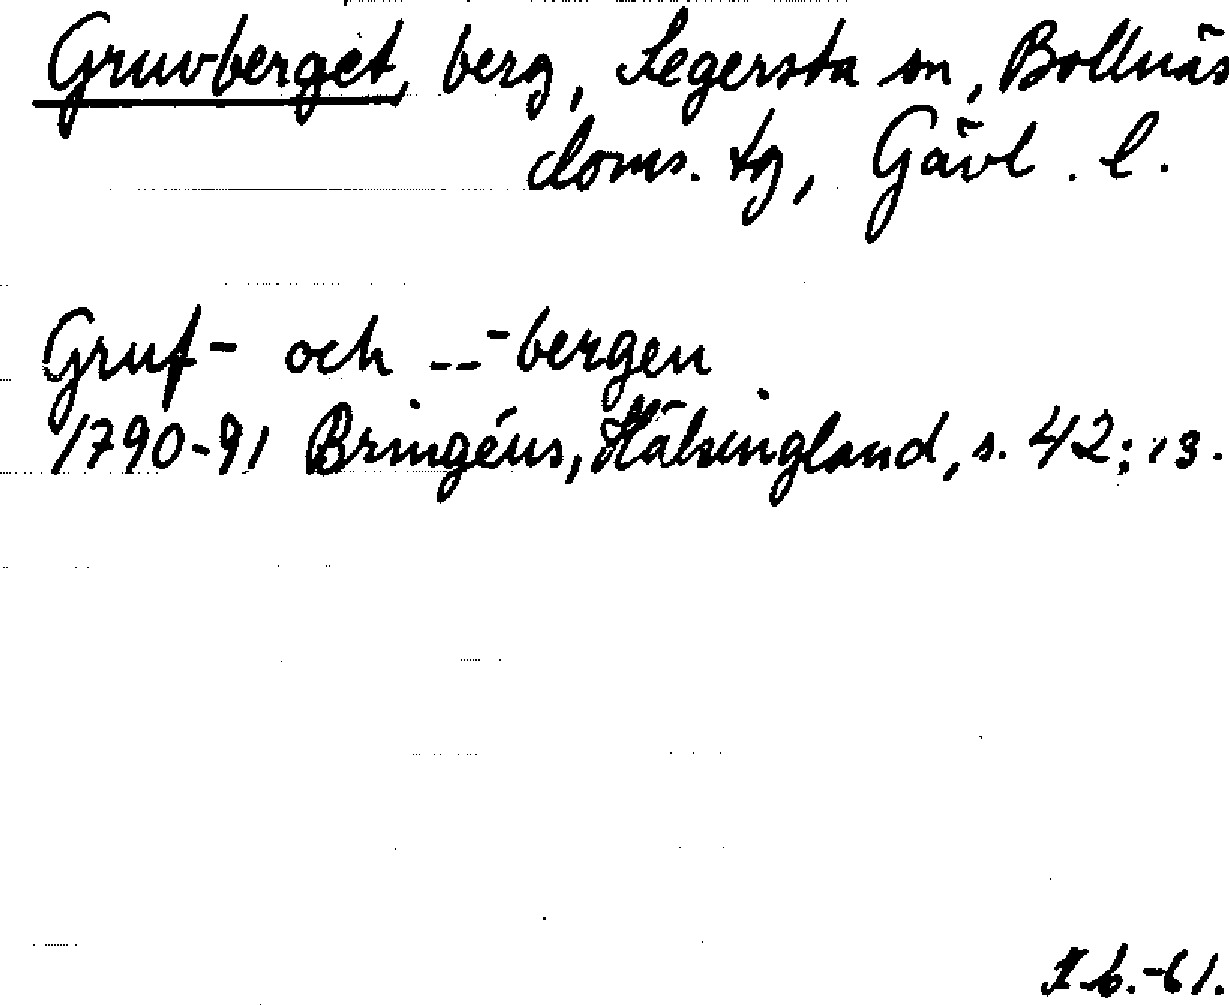 Gruvberget, berg, Segersta sn, Bollnäs
doms. tg, Gävl. l.
Gruf- och -- -bergen
1790-91 Bringéus, Hälsingland, s. 42; 13.